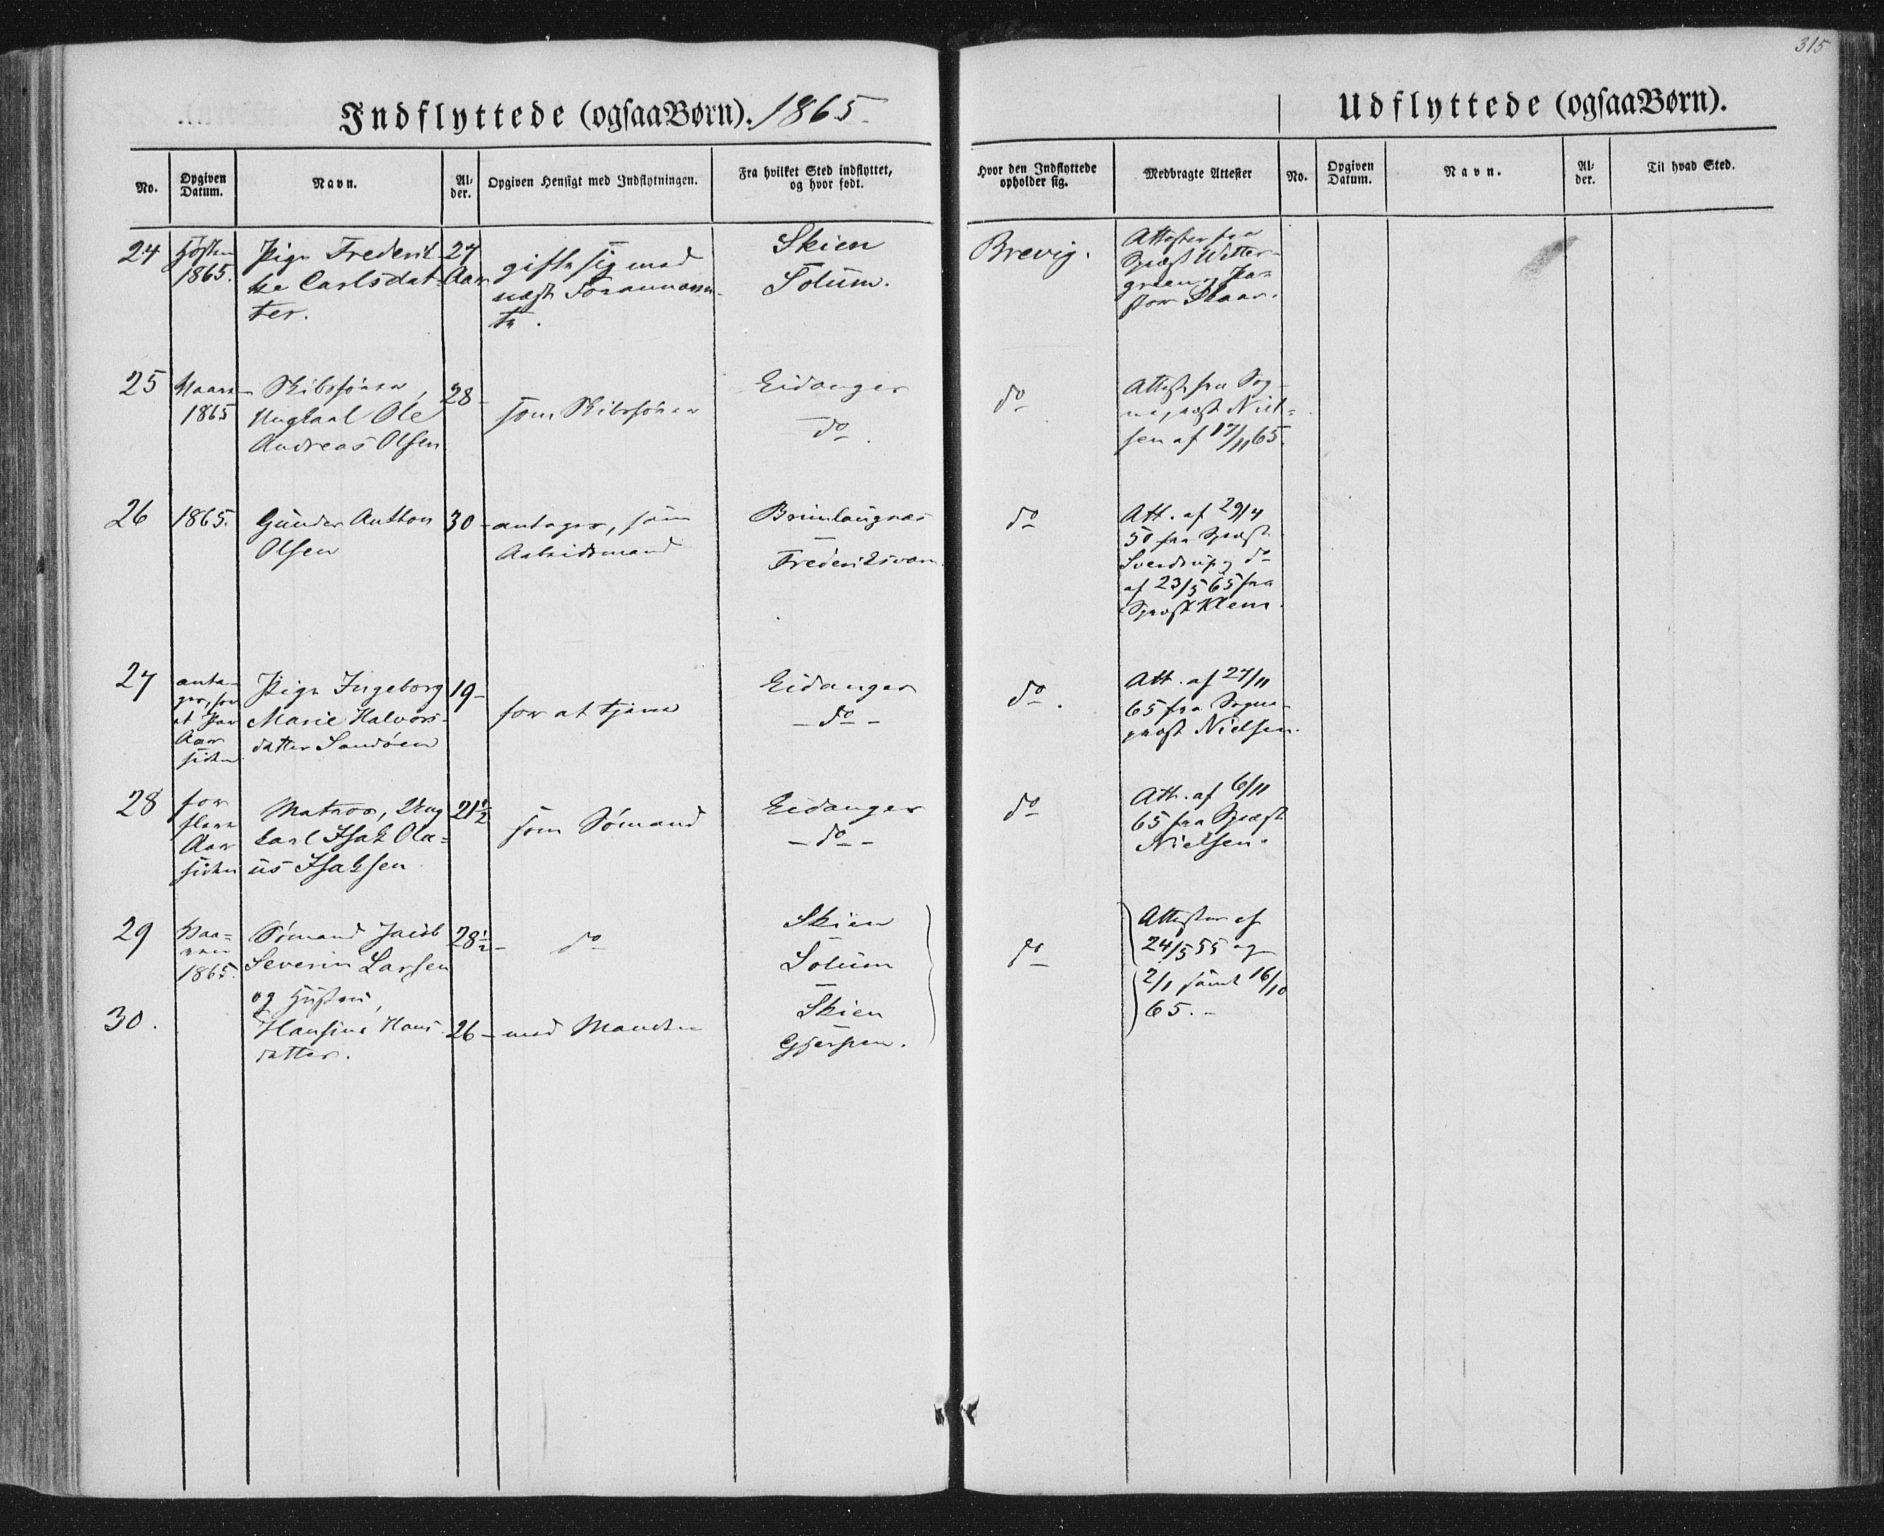 315
Indflyttede (ogsaaBørn). 1865.
Udflyttede (ogsaaBørn).
No.
Opgiven Datum.
Navn.
Al-
der.
Opgiven Hensigt med Indflytningen.
Fra hvilket Sted indflyttet,
og hvor født.
Hvor den Indflyttede
opholder sig.
Medbragte Attester
No.
Opgiven
Datum.
Navn.
Al-
der.
Til hvad Sted.
24
Høsten
1865.
Pige Frederik-
ke Carlsdat-
ter.
27
Aar
gifte sig med
næst Forannævn-
te.
Skien
Solum.
Brevig.
Attester fra
Spræst Wetter-
green og Pa-
stor Skaar.
25
Vaaren
1865
Skibstømrer,
Ungkarl Ole
Andreas Olsen
28-
som Skibstømrer
Eidanger
do
do
Attest fra Sog-
nepræst Niel-
sen af 17/11 65.
26
1865.
Gunder Anthon
Olsen
30-
antager, som
Arbeidsmand
Brunlaugnæs
Frederiksværn
do
Att. af 29/4
50 fra Spræst
Sverdrup og do
af 23/5 65 fra
Spræst Klem.
27
anta-
ger, for
et Par
Aar
siden
Pige Ingeborg
Marie Halvors-
datter Sandøen
19-
for at tjene
Eidanger
- do -
do.
Att. af 27/11
65 fra Sogne-
præst Nielsen.
28
for
flere
Aar
siden
Matros, Ung-
karl Isak Ola-
us Isaksen
21½
som Sømand
Eidanger
- do -
do
Att. af 6/11
65 fra Spræst
Nielsen.
29
Vaa-
ren
1865.
Sømand Jacob
Severin Larsen
og Hustru,
28½-
do
Skien
Solum
do
Attester af
24/5 55 og
2/1 samt 16/10
65. -
30.
Hansine Hans-
datter.
26-
med Manden
Skien
Gjerpen.